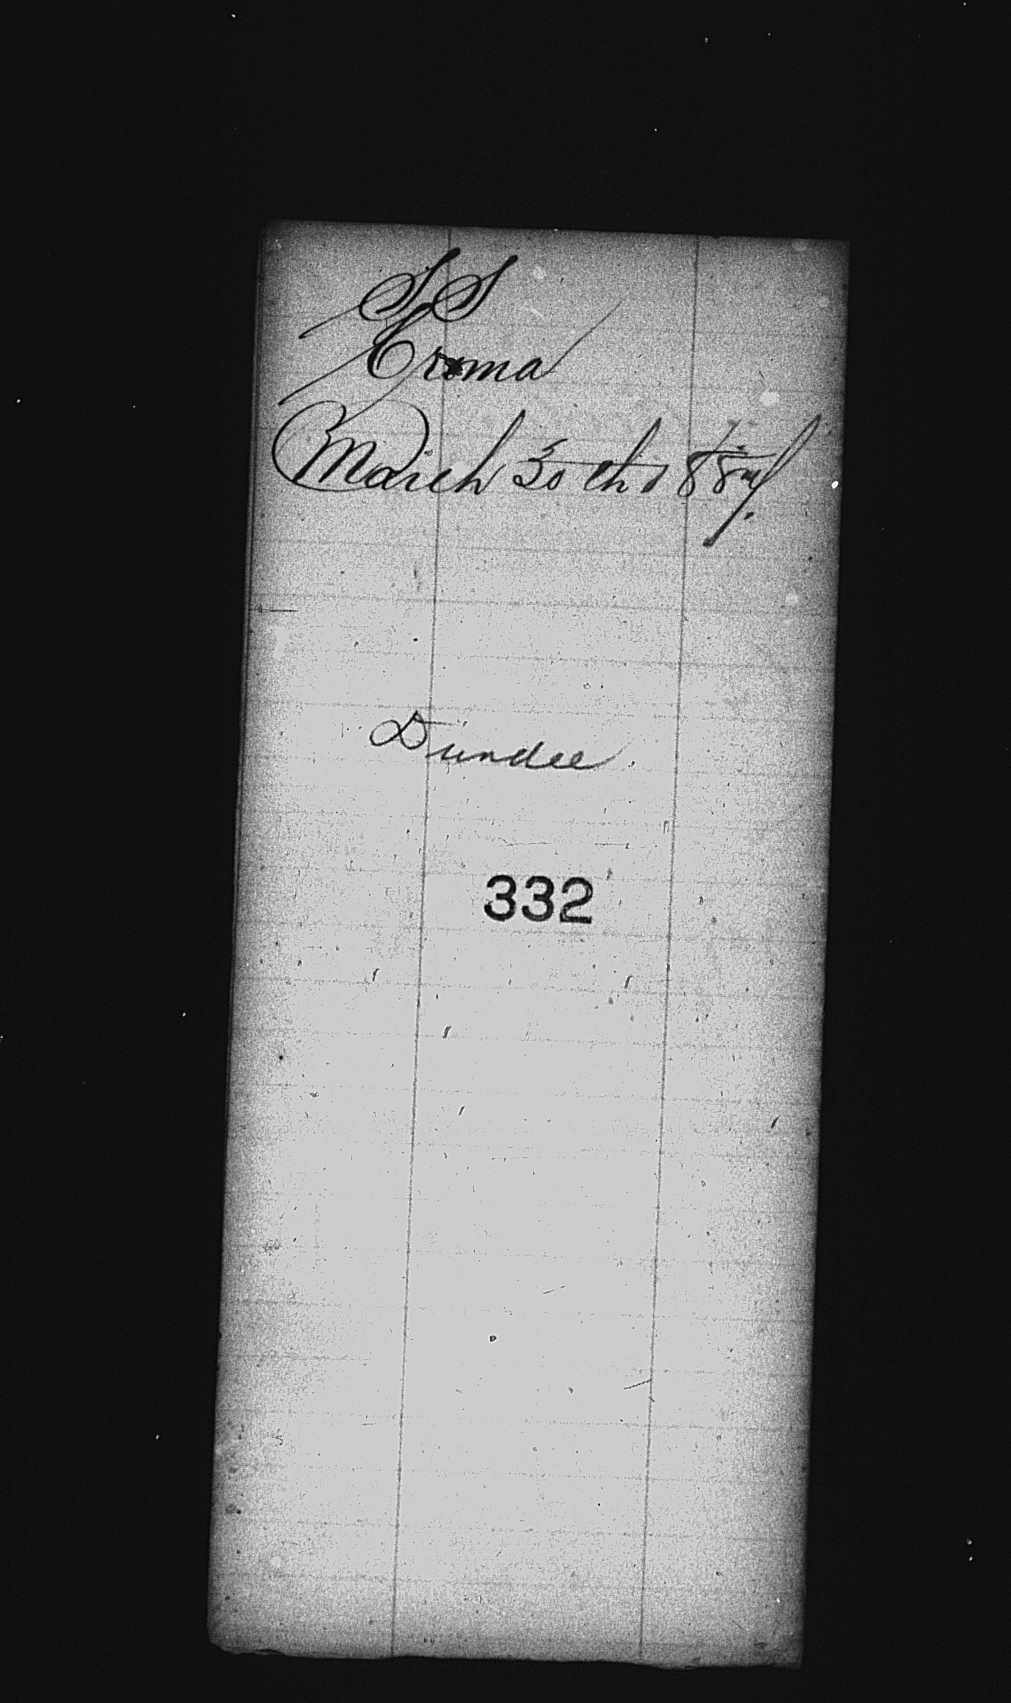 SS
Eroma
March 30th 1887.
Dundee
332